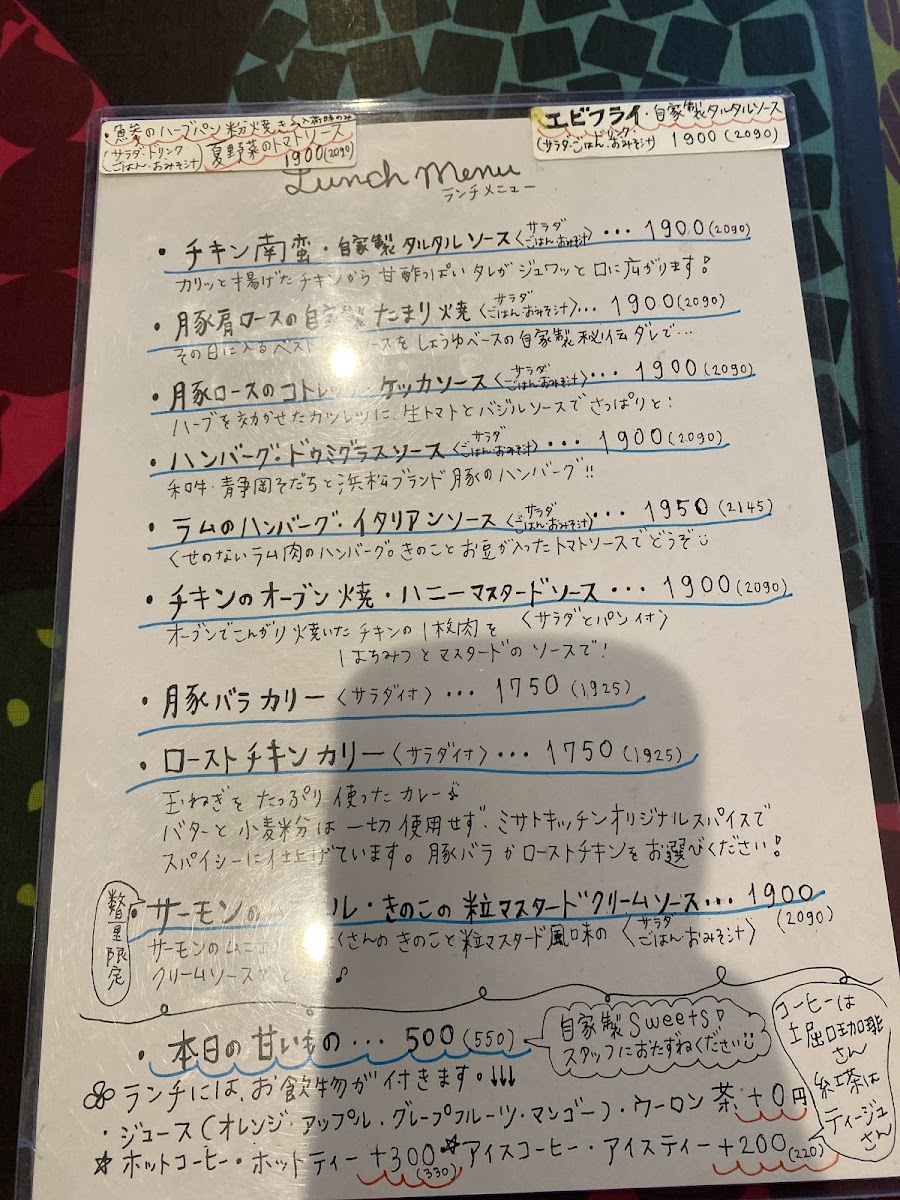 のハーブパン粉焼き
夏野菜のトマトソース
(サラダ・ドリンク
ごはん・おみそ汁)
1900(2090)
エビフライ・自家製タルタルソース
(サラダ・ドリンク・
ごはん・おみそ汁) 1900(2090)
Lunch Menu
ランチメニュー
・チキン南蛮・自家製タルタルソース〈サラダ ごはん・おみそ汁〉・・・1900(2090)
カリッと揚げたチキンから甘酢っぱいタレがジュワッと口に広がります!
・豚肩ロースの自家製たまり焼〈サラダ ごはん・おみそ汁〉・・・1900(2090)
その日に入るベスト ースをしょうゆベースの自家製秘伝ダレで…
・豚ロースのコトレッタ・ケッカソース〈サラダ ごはん・おみそ汁〉・・・1900(2090)
ハーブを効かせたカツレツに生トマトとバジルソースでさっぱりと!
・ハンバーグ・ドゥミグラスソース〈サラダ ごはん・おみそ汁〉・・・1900(2090)
和牛・静岡そだちと浜松ブランド豚のハンバーグ!!
・ラムのハンバーグ・イタリアンソース〈サラダ ごはん・おみそ汁〉・・・1950(2145)
くせのないラム肉のハンバーグ。きのことお豆が入ったトマトソースでどうぞ
・チキンのオーブン焼・ハニーマスタードソース・・・1900(2090)
オーブンでこんがり焼いたチキンの1枚肉を〈サラダとパン付〉
はちみつとマスタードのソースで!
・豚バラカリー〈サラダ付〉・・・1750(1925)
・ローストチキンカリー〈サラダ付〉・・・1750(1925)
玉ねぎをたっぷり使ったカレー♪
バターと小麦粉は一切使用せず、ミサトキッチンオリジナルスパイスで
スパイシーに仕上げています。豚バラかローストチキンをお選びください!
数量限定
・サーモンの ル・きのこの粒マスタードクリームソース・・・1900
(2090)
サーモンのムニエ くさんのきのこと粒マスタード風味の〈サラダ ごはん・おみそ汁〉
クリームソースで ♪
・本日の甘いもの・・・500(550)
自家製Sweets♡
スタッフにおたずねください
コーヒーは
さん
紅茶は
ティージュ
さん
ランチには、お飲物が付きます。↓↓↓
・ジュース(オレンジ・アップル・グレープフルーツ・マンゴー)・ウーロン茶 +0円
☆ホットコーヒー・ホットティー+300(330) ☆アイスコーヒー・アイスティー+200(220)